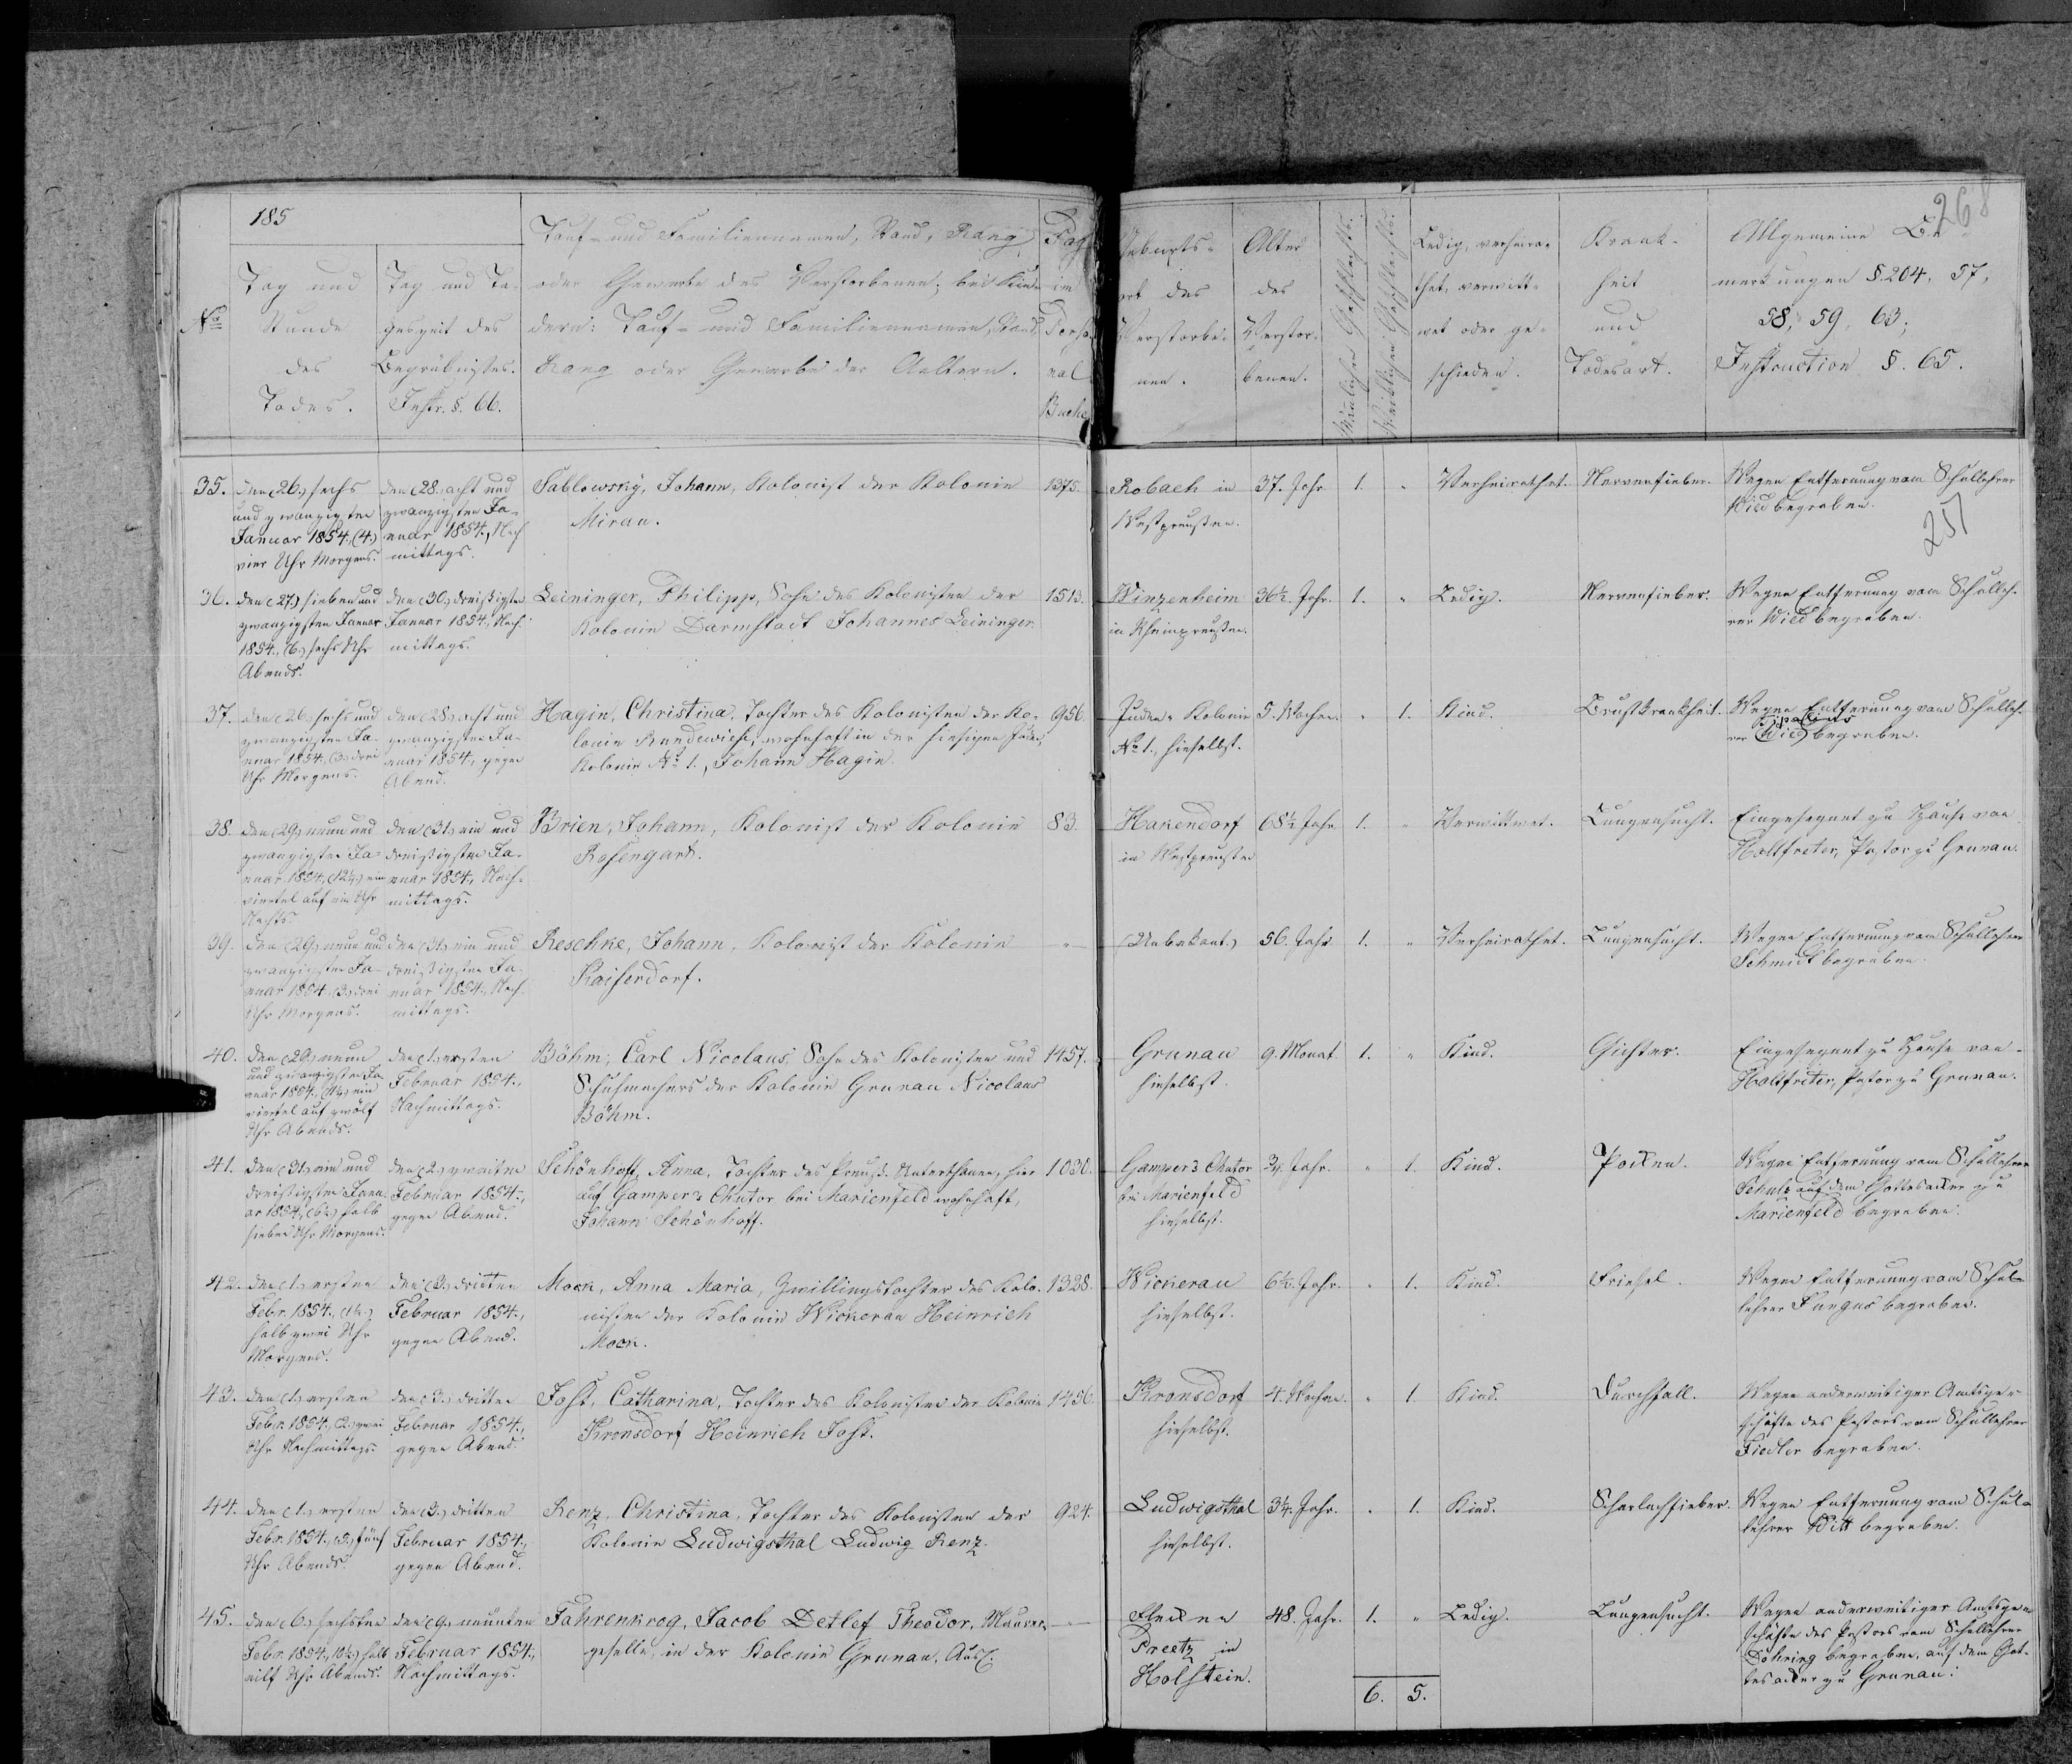 185
268
257
No
Tag und
Stunde
des
Todes.
Tag und Ta-
geszeit des
Begräbnißes.
Instr. §. 66.
Tauf- und Familiennamen, Stand, Rang
oder Gewerbe des Verstorbenen; bei Kin-
dern: Tauf- und Familiennamen, Stand,
Rang oder Gewerbe der Aeltern.
Pag
im
Perso-
nal
Buche
Geburts-
ort des
Verstorbe-
nen.
Alter
des
Verstor-
benen.
Männlichen Geschlechts.
Weiblichen Geschlechts.
Ledig, verheira-
thet, verwitt-
wet oder ge-
schieden.
Krank-
heit
und
Todesart.
Allgemeine Be-
merkungen § 204, 57,
58, 59, 63;
Instruction §. 65.
35. den (26.) sechs
und zwanzigsten
Januar 1854., (4.)
vier Uhr Morgens.
den (28.) acht und
zwanzigsten Ja-
nuar 1854., Nach-
mittags.
Sablowsky, Johann, Kolonist der Kolonie
Mirau.
1375.
Robach in
Westpreußen.
37. Jahr
1.
"
Verheirathet.
Nervenfieber.
Wegen Entfernung vom Schullehrer
Wild begraben.
36. den (27.) sieben und
zwanzigsten Januar
1854., (6.) sechs Uhr
Abends.
den (30.) dreißigsten
Januar 1854., Nach-
mittags.
Leininger, Philipp, Sohn des Kolonisten der
Kolonie Darmstadt Johannes Leininger.
1513.
Winzenheim
in Rheinpreußen.
36½. Jahr.
1.
"
Ledig.
Nervenfieber.
Wegen Entfernung vom Schulleh-
rer Wild begraben.
37. den (26.) sechs und
zwanzigsten Ja-
nuar 1854., (3.) drei
Uhr Morgens.
den (28.) acht und
zwanzigsten Ja-
nuar 1854., gegen
Abend.
Hagin, Christina, Tochter des Kolonisten der Ko-
lonie Rundewiese, wohnhaft in der hiesigen Juden-
Kolonie No 1., Johann Hagin.
956.
Juden-Kolonie
No 1., hieselbst.
5. Wochen.
"
1.
Kind.
Brustkrankheit.
Wegen Entfernung vom Schulleh-
rer (Wild) begraben.
38. den (29.) neun und
zwanzigsten Ja-
nuar 1854., (12¼.) ein
viertel auf ein Uhr
Nachts.
den (31.) ein und
dreißigsten Ja-
nuar 1854., Nach-
mittags.
Brien, Johann, Kolonist der Kolonie
Rosengart.
83.
Hakendorf
in Westpreußen
68½ Jahr
1.
"
Verwittwet.
Lungensucht.
Eingesegnet zu Hause von
Holtfreter, Pastor zu Grunau.
39. den (29.) neun und
zwanzigsten Ja-
nuar 1854., (3.) drei
Uhr Morgens.
den (31.) ein und
dreißigsten Ja-
nuar 1854., Nach-
mittags.
Reschke, Johann, Kolonist der Kolonie
Kaiserdorf.
"
(Unbekant.)
56. Jahr
1.
"
Verheirathet.
Lungensucht.
Wegen Entfernung vom Schullehrer
Schmidt begraben.
40. den (29.) neun
und zwanzigsten Ja-
nuar 1854., (11¼.) ein
viertel auf zwölf
Uhr Abends.
den (1.) ersten
Februar 1854.,
Nachmittags.
Böhm, Carl Nicolaus, Sohn des Kolonisten und
Schuhmachers der Kolonie Grunau Nicolaus
Böhm.
1457.
Grunau
hieselbst.
9. Monat
1.
"
Kind.
Gichter.
Eingesegnet zu Hause von
Holtfreter, Pastor zu Grunau.
41. den (31.) ein und
dreißigsten Janu-
ar 1854., (6½.) halb
sieben Uhr Morgens.
den (2.) zweiten
Februar 1854.,
gegen Abend.
Schönhoff, Anna, Tochter des Preuß. Unterthanen, hier
auf Gamper's Chutor bei Marienfeld wohnhaft,
Johann Schönhoff.
1030.
Gamper's Chutor
bei Marienfeld
hieselbst.
¾. Jahr.
"
1.
Kind.
Pocken.
Wegen Entfernung vom Schullehrer
Schulz auf dem Gottesacker zu
Marienfeld begraben.
42. den (1.) ersten
Febr. 1854., (1½.)
halb zwei Uhr
Morgens.
den (3.) dritten
Februar 1854.,
gegen Abend.
Mock, Anna Maria, Zwillingstochter des Kolo-
nisten der Kolonie Wickerau Heinrich
Mock.
1328.
Wickerau
hieselbst.
6½. Jahr.
"
1.
Kind.
Friesel.
Wegen Entfernung vom Schul-
lehrer Fungus begraben.
43. den (1.) ersten
Febr. 1854., (2.) zwei
Uhr Nachmittags.
den (3.) dritten
Februar 1854.,
gegen Abend.
Jost, Catharina, Tochter des Kolonisten der Kolonie
Kronsdorf Heinrich Jost.
1456.
Kronsdorf
hieselbst.
4. Wochen.
"
1.
Kind.
Durchfall.
Wegen anderweitiger Amtsge-
schäfte des Pastors vom Schullehrer
Fiedler begraben.
44. den (1.) ersten
Febr. 1854., (5.) fünf
Uhr Abends.
den (3.) dritten
Februar 1854.,
gegen Abend.
Renz, Christina, Tochter des Kolonisten der
Kolonie Ludwigsthal Ludwig Renz.
924.
Ludwigsthal
hieselbst.
3¼. Jahr.
"
1.
Kind.
Scharlachfieber.
Wegen Entfernung vom Schul-
lehrer Witt begraben.
45. den (6.) sechsten
Febr. 1854., (10½.) halb
eilf Uhr Abends.
den (9.) neunten
Februar 1854.,
Nachmittags.
Fahrenkrog, Jacob Detlef Theodor, Maurer-
geselle, in der Kolonie Grunau, Ausl.
Flecken
Preetz in
Holstein.
48. Jahr.
1.
"
Ledig.
Lungensucht.
Wegen anderweitiger Amtsge-
schäfte des Pastors vom Schullehrer
Döhring begraben, auf dem Got-
tesacker zu Grunau.
6.
5.